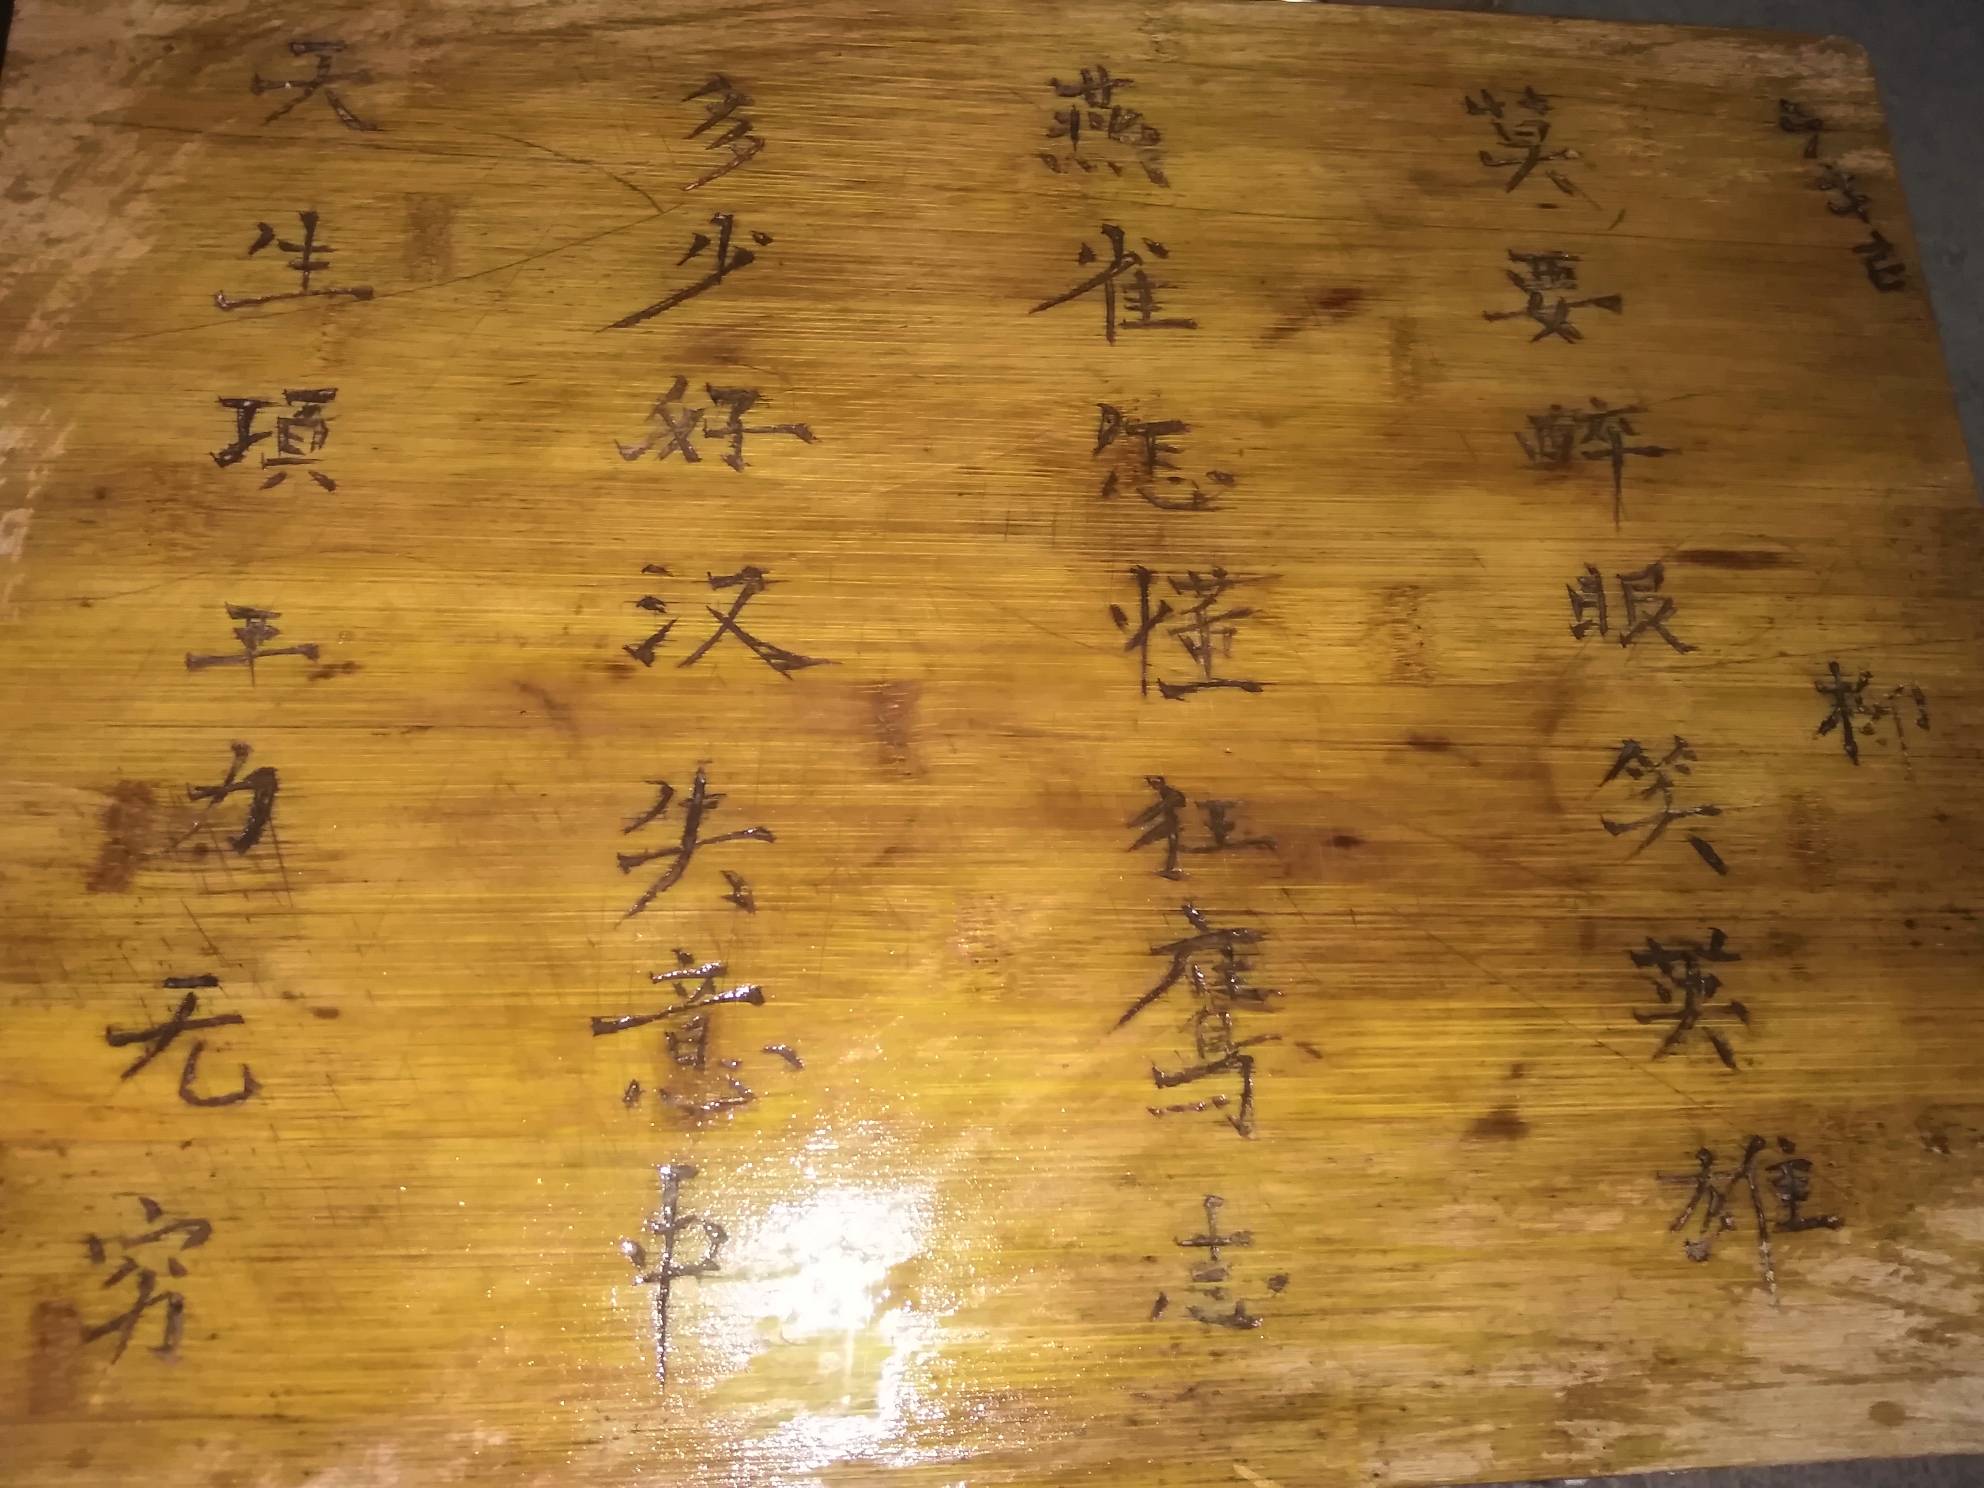 天生項王力无穷
多少好汉失意中
燕雀怎懂狂鹰志
莫要醉眼笑英雄
柳